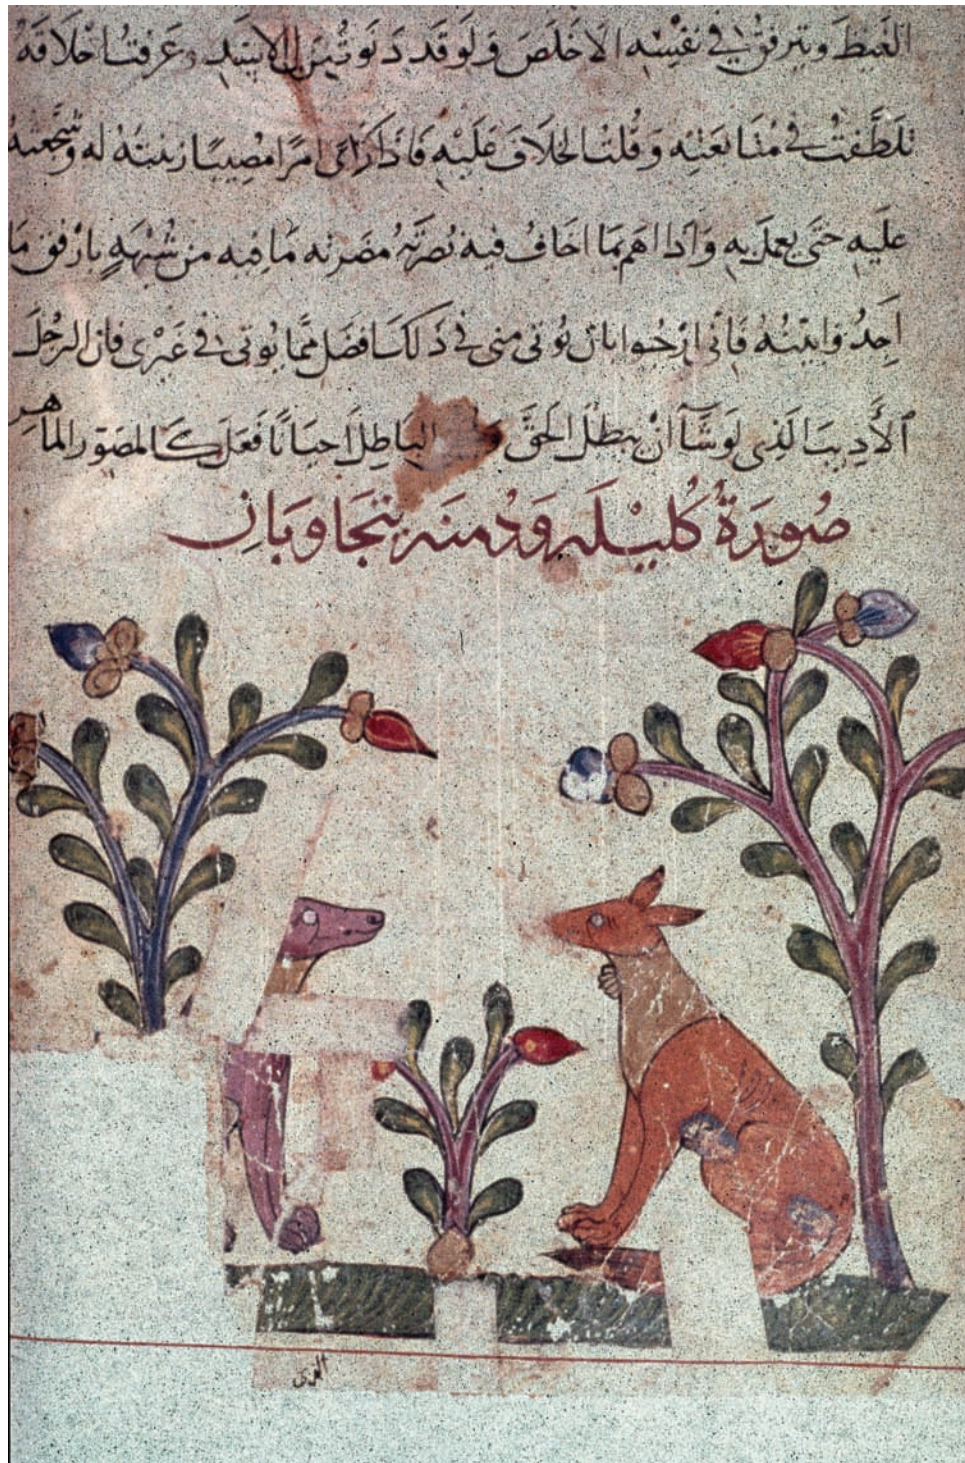 الغيظ ويترفق في نفسه الاخلص ولو قد دنوت من الاسد وعرفت اخلاقه
تلطفت في متابعته وقلت الخلاف عليه فاذا راى امرا مصيبا زينته له وشجعته
عليه حتى يعمل به واذا اهم بما اخاف فيه بصرته مضرته ما فيه من شبهه بارفق ما
اجد وابينه فاني ارجوا بان يوتى مني في ذلك افضل مما يوتى في غيرى فان الرجل
الأديب الذي لو شآ ان يبطل الحق الباطل احيانا فعل كالمصور الماهر
صُورَةُ كُلِيْلَه وَدُمنَه يتجَاوبَانِ